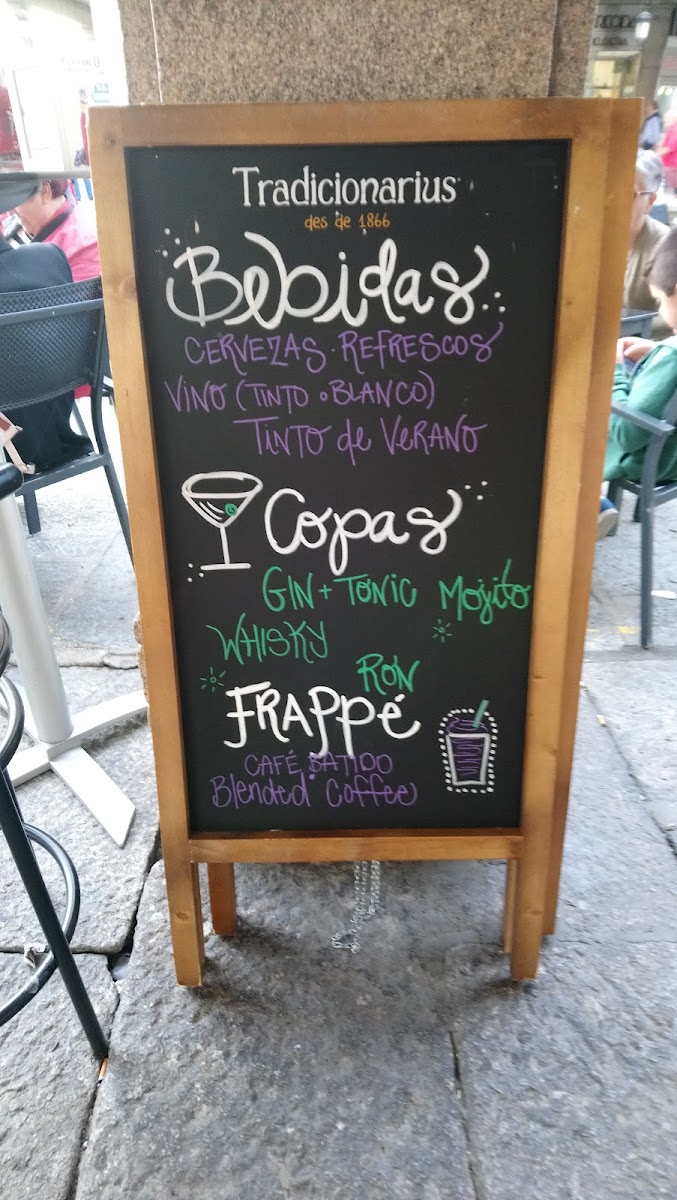 Tradicionarius
des de 1866
Bebidas
CERVEZAS · REFRESCOS
VINO (TINTO o BLANCO)
TINTO de VERANO
Copas
GIN + TONIC Mojito
WHISKY
RON
FRAPPÉ
CAFÉ BATIDO
Blended Coffee